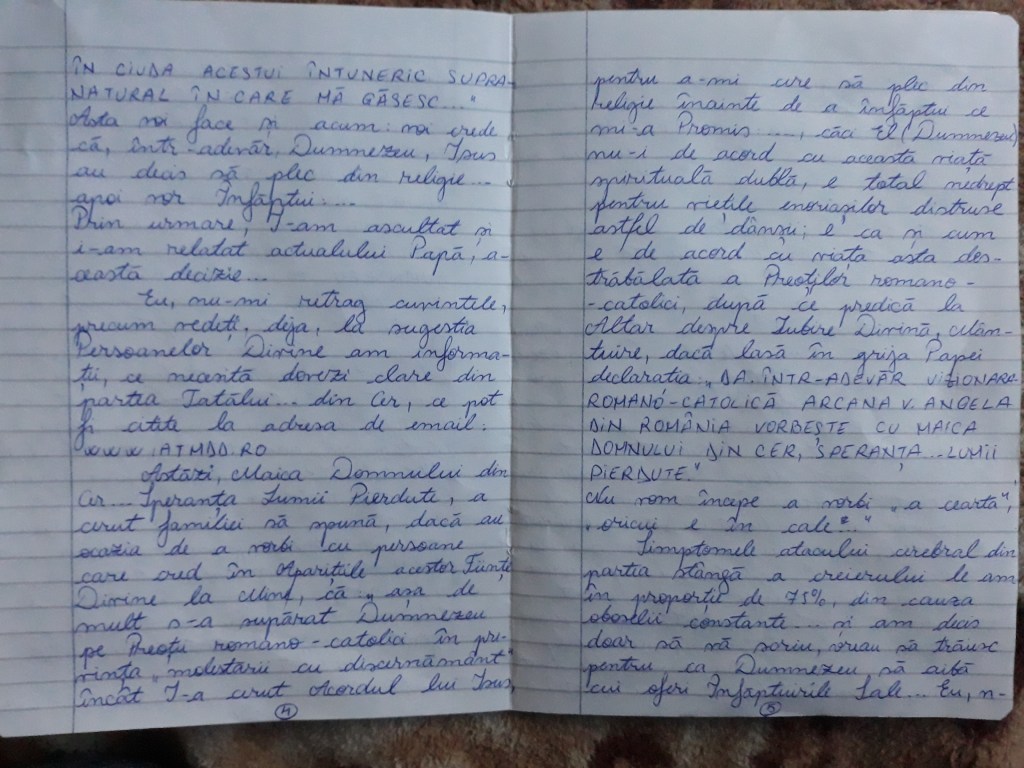 ÎN CIUDA ACESTUI ÎNTUNERIC SUPRA-
NATURAL ÎN CARE MĂ GĂSESC..."
Asta voi face și acum: voi crede
că, într-adevăr, Dumnezeu, Isus
au decis să plec din religie...
apoi vor Înfăptui....
Prin urmare, I-am ascultat și
i-am relatat actualului Papă, a-
ceastă decizie...
Eu, nu-mi retrag cuvintele,
precum vedeți, deja, la sugestia
Persoanelor Divine am informa-
ții, ce necesită dovezi clare din
partea Tatălui... din Cer, ce pot
fi citite la adresa de email:
www.ATMDD.RO
Astăzi, Maica Domnului din
Cer... Speranța Lumii Pierdute, a
cerut familiei să spună, dacă au
ocazia de a vorbi cu persoane
care cred în Aparițiile acestor Ființe
Divine la Mine, că „așa de
mult s-a supărat Dumnezeu
pe Preoții romano-catolici în pri-
vința „molestării cu discernământ"
încât I-a cerut Acordul lui Isus,
4
pentru a-mi cere să plec din
religie înainte de a înfăptui ce
mi-a Promis ...., căci El (Dumnezeu)
nu-i de acord cu această viață
spirituală dublă, e total nedrept
pentru viețile enoriașilor distruse
astfel de dânșii; e ca și cum
e de acord cu viața asta des-
trăbălată a Preoților romano-
-catolici, după ce predică la
Altar despre Iubire Divină, Mân-
tuire, dacă lasă în grija Papei
declarația: „DA. ÎNTR-ADEVĂR VIZIONARA
ROMANO-CATOLICĂ ARCANA V. ANGELA
DIN ROMÂNIA VORBEȘTE CU MAICA
DOMNULUI DIN CER, SPERANȚA...LUMII
PIERDUTE."
Nu vom începe a vorbi „a ceartă",
„oricui e în cale..."
Simptomele atacului cerebral din
partea stângă a creierului le am
în proporție de 75%, din cauza
oboselii constante... și am decis
doar să vă scriu, vreau să trăiesc
pentru ca Dumnezeu să aibă
cui oferi Înfăptuirile Sale... Eu, n-
5